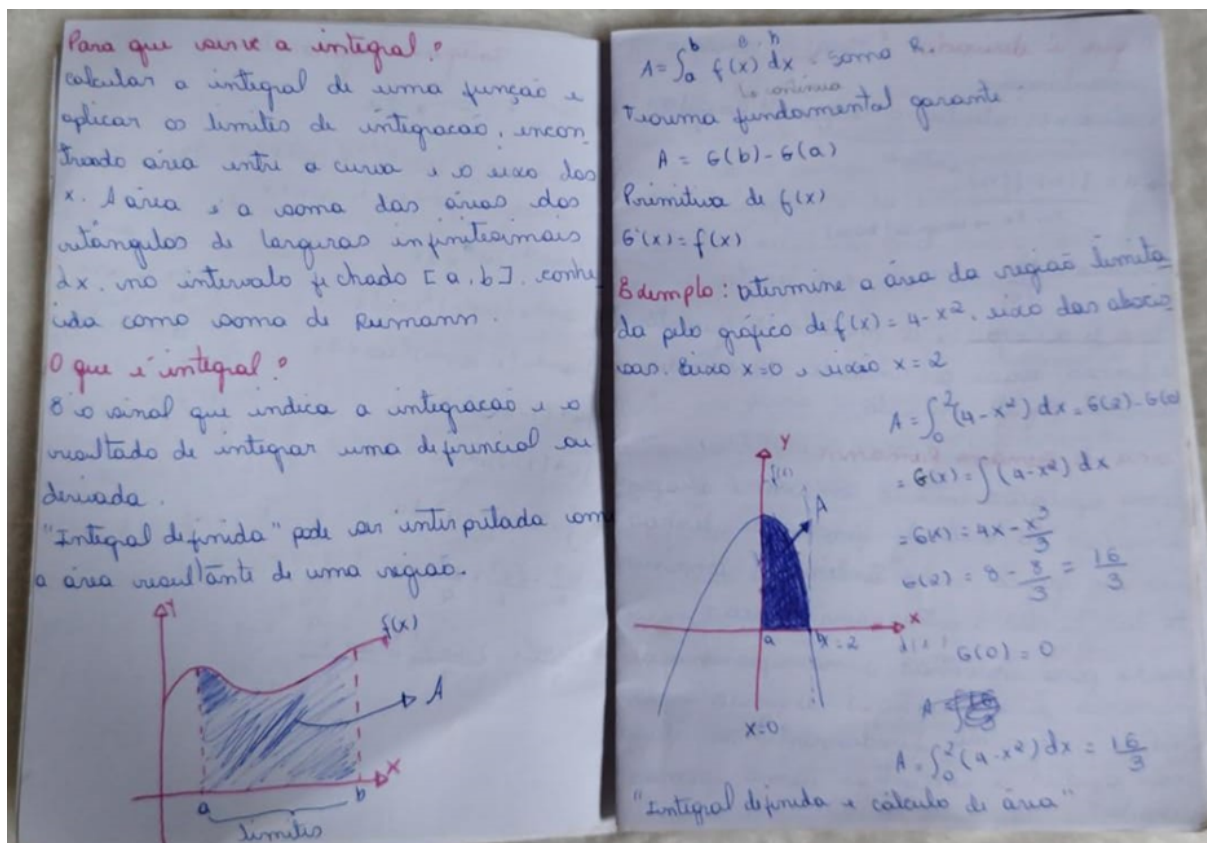 Para que serve a integral?
calcular a integral de uma função e
aplicar os limites de integração, incon
trado área entre a curva e o eixo dos
x. A área é a soma das áreas dos
retângulos de larguras infinitesimais
dx, no intervalo fechado [a,b], conhe
cida como soma de Riemann.
O que é integral?
É o sinal que indica a integração e o
resultado de integrar uma diferencial ou
derivada.
"Integral definida" pode ser interpretada com
a área resultante de uma região.
Y
f(x)
A
X
a b
limites
B. h
A = ∫ₐᵇ f(x) dx = soma R.
↳ continua
Teorema fundamental garante:
A = G(b) - G(a)
Primitiva de f(x)
G'(x) = f(x)
Exemplo: Determine a área da região limita
da pelo gráfico de f(x) = 4 - x², eixo das abscis-
sas. Eixo x=0 e eixo x=2
A = ∫₀² (4 - x²) dx = G(2) - G(0)
= G(x) = ∫(4 - x²) dx
= G(x) = 4x - x³/3
G(2) = 8 - 8/3 = 16/3
G(0) = 0
Y
A
X
a b
x = 2
x=0
A = ∫₀² (4 - x²) dx = 16/3
"Integral definida e cálculo de área"